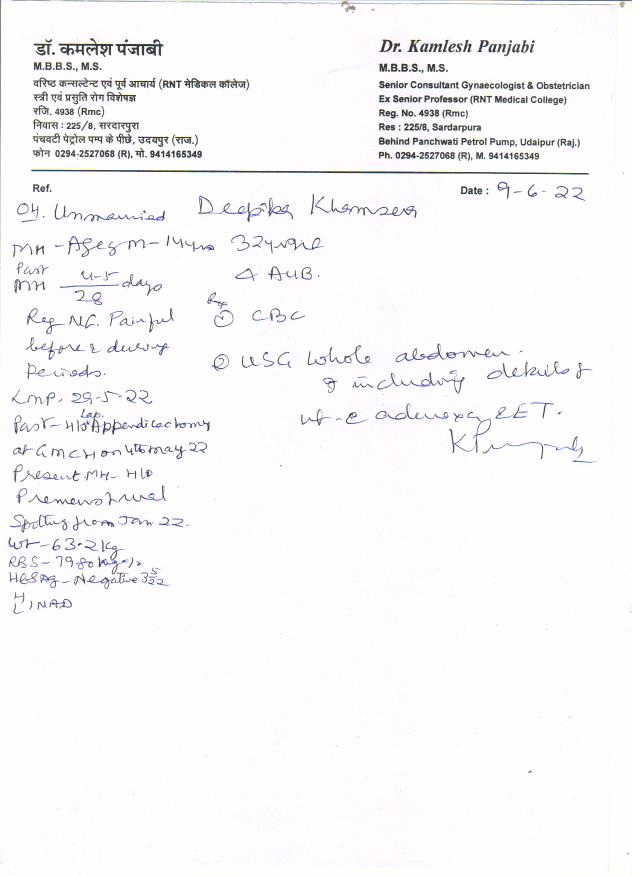 डॉ. कमलेश पंजाबी
M.B.B.S., M.S.
वरिष्ठ कन्सल्टेन्ट एवं पूर्व आचार्य (RNT मेडिकल कॉलेज)
स्त्री एवं प्रसुति रोग विशेषज्ञ
रजि. 4938 (Rmc)
निवास : 225/8, सरदारपुरा
पंचवटी पेट्रोल पम्प के पीछे, उदयपुर (राज.)
फोन 0294-2527068 (R), मो. 9414165349
Dr. Kamlesh Panjabi
M.B.B.S., M.S.
Senior Consultant Gynaecologist & Obstetrician
Ex Senior Professor (RNT Medical College)
Reg. No. 4938 (Rmc)
Res : 225/8, Sardarpura
Behind Panchwati Petrol Pump, Udaipur (Raj.)
Ph. 0294-2527068 (R), M. 9414165349
Ref.
Date : 9-6-22
OH. Unmarried
MH - Age of M - 14yrs
Past MH 4-5/28 days
Reg N.C. Painful
before & during
Periods.
LMP. 29-5-22
Past - H/O Lap. Appendicectomy
at GMCH on 4th may 22
Present MH - H/O
Premenstrual
Spotting from Jan 22.
Wt - 63.2 kg
RBS - 79
HBSAg - Negative
H/L NAD
Deepika
AUB.
① CBC
② USG Whole abdomen.
including details of
ut. c adnexa & ET.